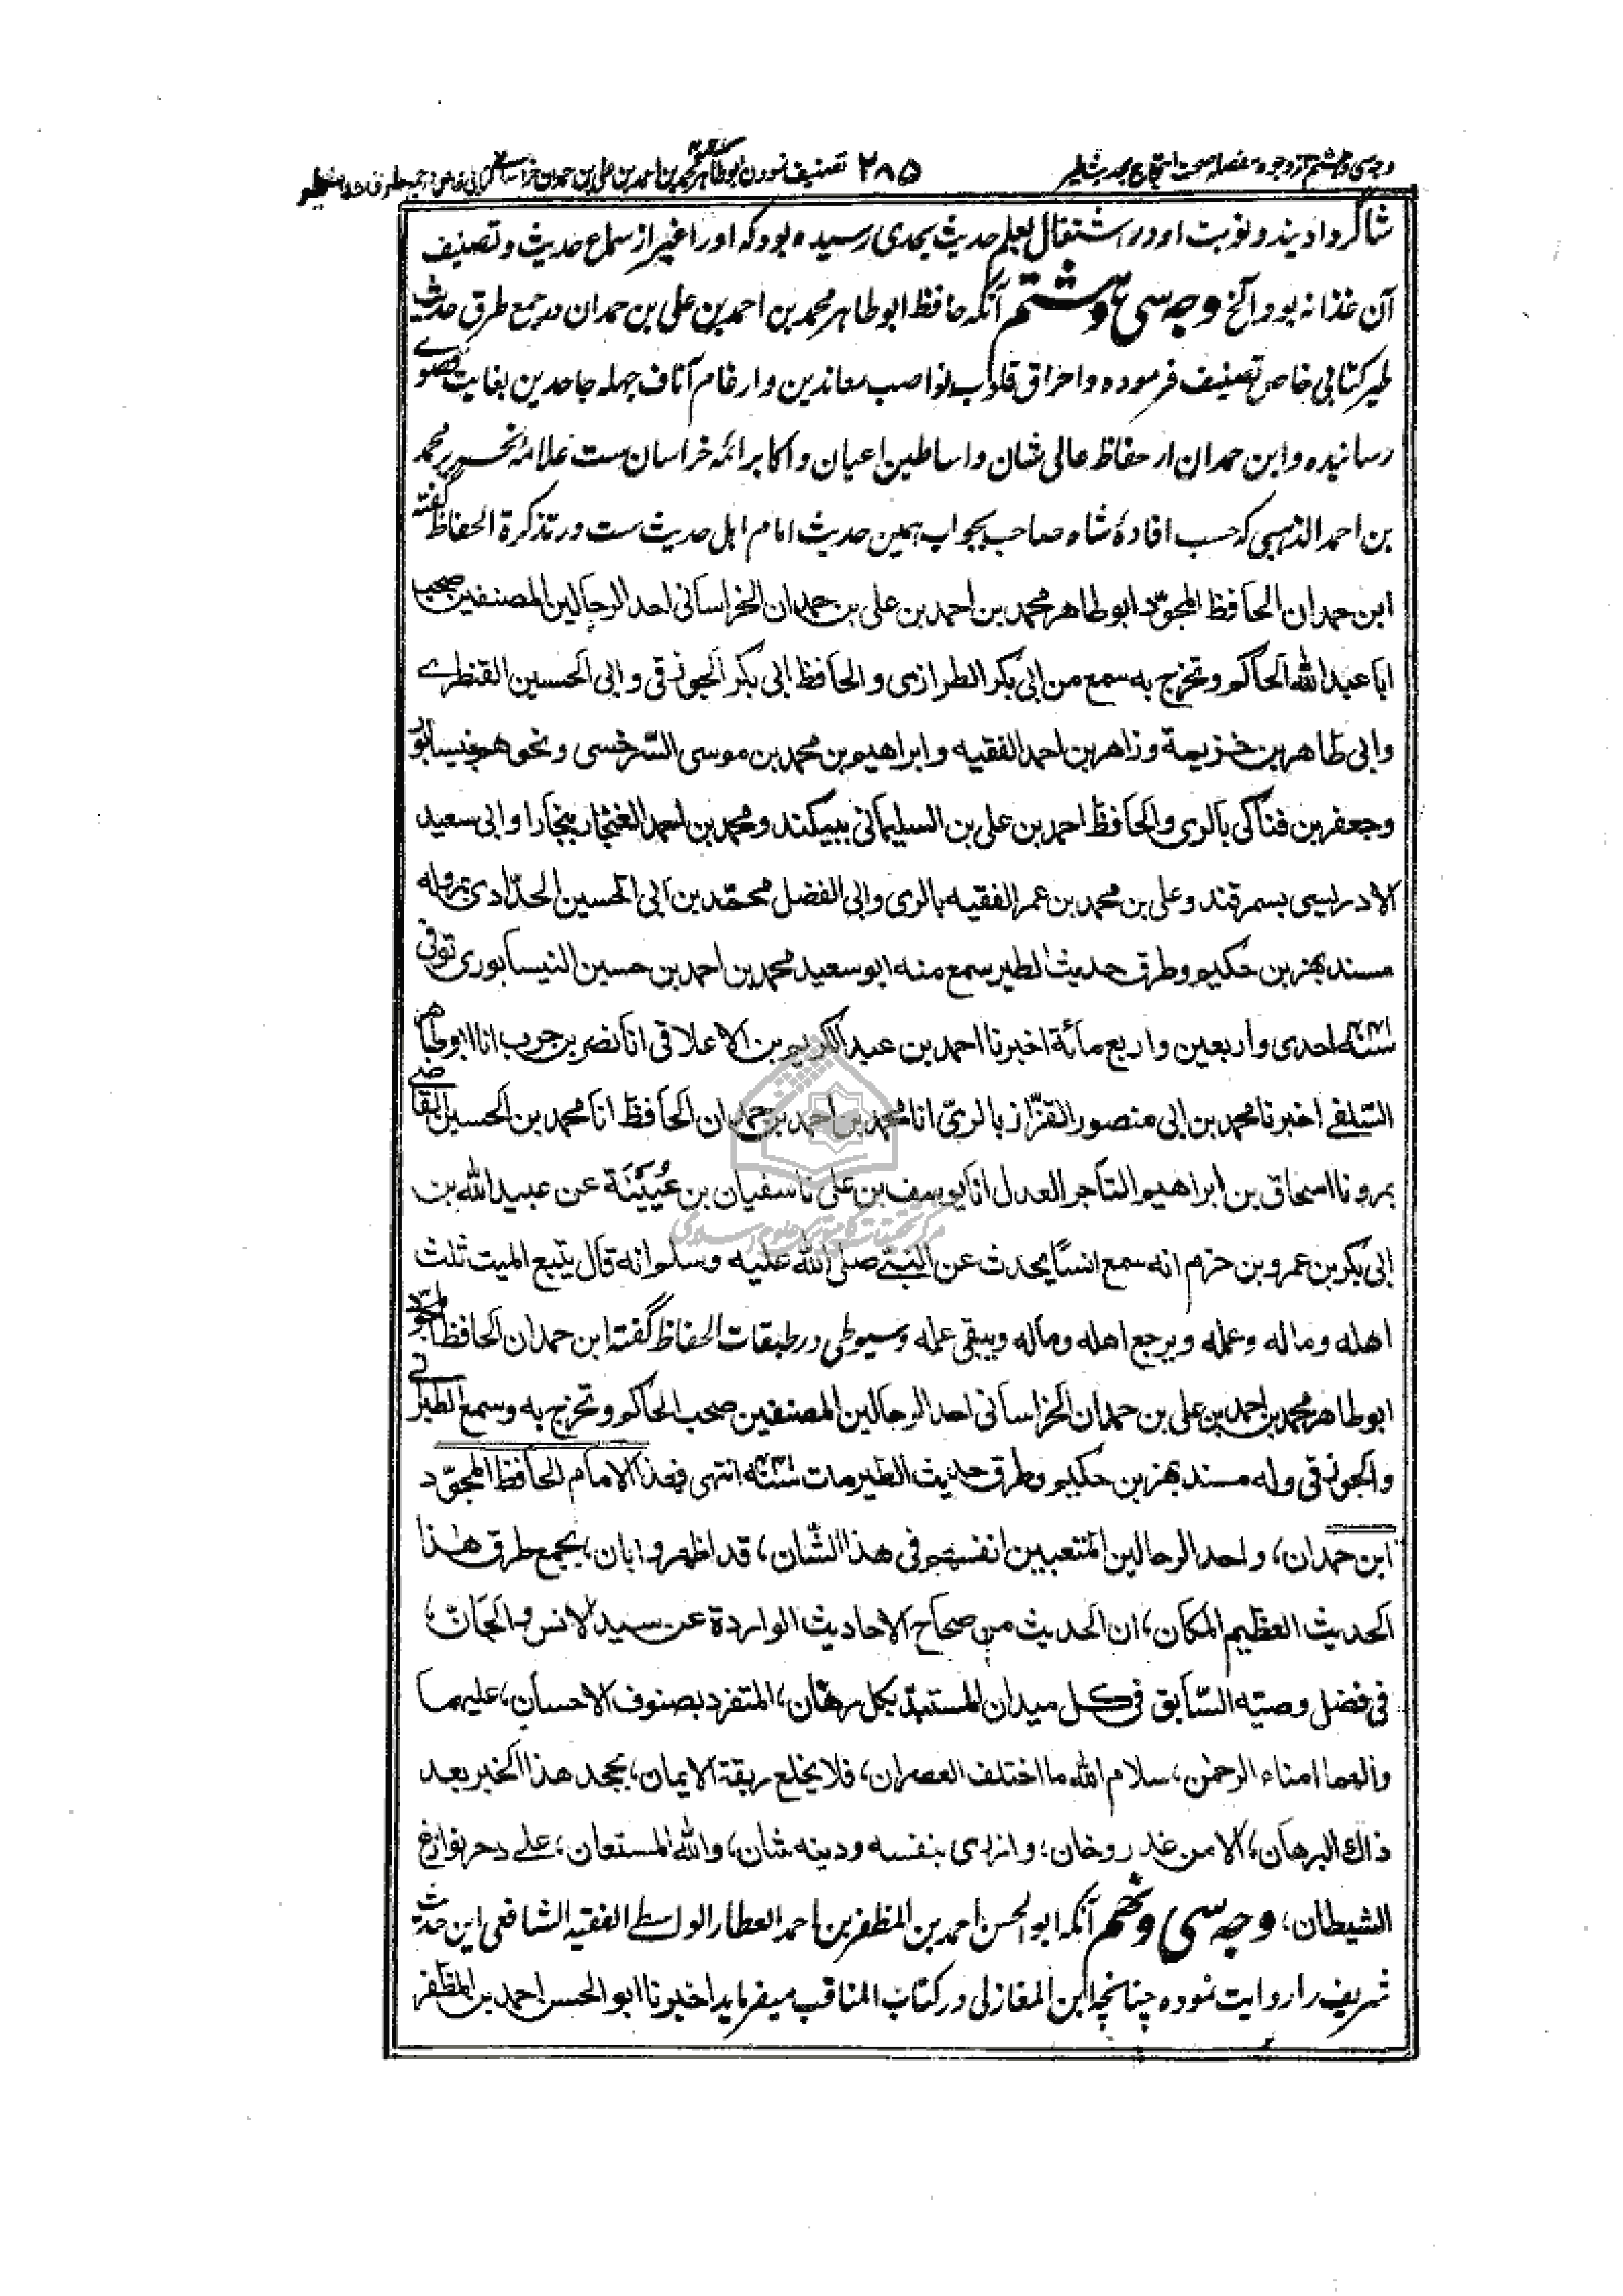 وجه سی و هشتم از وجوه مفصله صحت احتجاج بحدیث طیر ۲۸۵ تصنیف نمودن ابو طاهر محمد بن احمد بن علی بن حمدان خراسانی
شاگرد او یند و نوبت او در اشتغال بعلم حدیث بحدی رسیده بود که او را غیر از سماع حدیث و تصنیف
آن غذا نه بود الخ وجه سی و هشتم آنکه حافظ ابو طاهر محمد بن احمد بن علی بن حمدان در جمع طرق حدیث
طیر کتابی خاص تصنیف فرموده و احراق قلوب نواصب معاندین و ارغام آناف جهله جاحدین بغایت قصوے
رسانیده و ابن حمدان از حفاظ عالی شان و اساطین اعیان و اکابر ائمه خراسان ست علامهٔ نحریر محمد
بن احمد الذهبی که حسب افادهٔ شاه صاحب بجواب همین حدیث امام اهل حدیث ست در تذکرة الحفاظ گفته
ابن حمدان الحافظ المجوّد ابو طاهر محمد بن احمد بن علی بن حمدان الخراسانی احد الرحالین المصنفین صحب
ابا عبد الله الحاکم و تخرج به سمع من ابی بکر الطرازی و الحافظ ابی بکر الجوزقی و ابی الحسین القنطرے
و ابی طاهر بن خزیمة و زاهر بن احمد الفقیه و ابراهیم بن محمد بن موسی السّرخسی و نحوهم بنیسابور
و جعفر بن فناکی بالری و الحافظ احمد بن علی بن السلیمانی ببیکند و محمد بن احمد الغنجار ببخارا و ابی سعید
الادریسی بسمرقند و علی بن محمد بن عمر الفقیه بالری و ابی الفضل محمّد بن ابی الحسین الحدّادی بمرو له
مسند بهز بن حکیم و طرق حدیث الطیر سمع منه ابو سعید محمد بن احمد بن حسین النیسابوری توفی
سنه ۴۴۱ احدی و اربعین و اربع مائة اخبرنا احمد بن عبد الکریم بن الاعلاقی انا نصر بن جرب انا ابو طاهر
السّلفے اخبرنا محمد بن ابی منصور القزّاز بالریّ انا محمد بن احمد بن حمدان الحافظ انا محمد بن الحسین القاضے
بمرو نا اسحاق بن ابراهیم التاجر العدل انا یوسف بن علی نا سفیان بن عُیَیْنَة عن عبید الله بن
ابی بکر بن عمرو بن حزم انه سمع انسًا یحدث عن النبے صلی الله علیه و سلم انه قال یتبع المیت ثلث
اهله و ماله و عمله و یرجع اهله و ماله و یبقی عمله و سیوطی در طبقات الحفاظ گفته ابن حمدان الحافظ المجود
ابو طاهر محمد بن احمد بن علی بن حمدان الخراسانی احد الرحالین المصنفین صحب الحاکم و تخرج به و سمع الطبرانے
و الجوزقی و له مسند بهز بن حکیم و طرق حدیث الطیر مات سنه ۴۴۱ انتهی فهذا الامام الحافظ المجوّد
ابن حمدان، و احد الرحالین المتعبین انفسهم فی هذا الشّان، قد اظهر و ابان، بجمع طرق هذا
الحدیث العظیم المکان، ان الحدیث من صحاح الاحادیث الواردة عن سید الانس و الجانّ،
فی فضل وصیّه السّابق فی کل میدان المستبدّ بکل رهان، المتفرد بصنوف الاحسان، علیهما
و آلهما امناء الرحمٰن، سلام الله ما اختلف العصران، فلا یخلع ربقة الایمان، بجحد هذا الخبر بعد
ذلك البرهان، الا من غدر و خان، و ازری بنفسه و دینه شان، و الله المستعان، علے دحر نوازغ
الشیطان، وجه سی و نهم آنکه ابو الحسن احمد بن المظفر بن احمد العطار الواسطے الفقیه الشافعی این حدیث
شریف را روایت نموده چنانچه ابن المغازلی در کتاب المناقب میفرماید اخبرنا ابو الحسن احمد بن المظفر
مرکز تحقیقات کامپیوتری علوم اسلامی